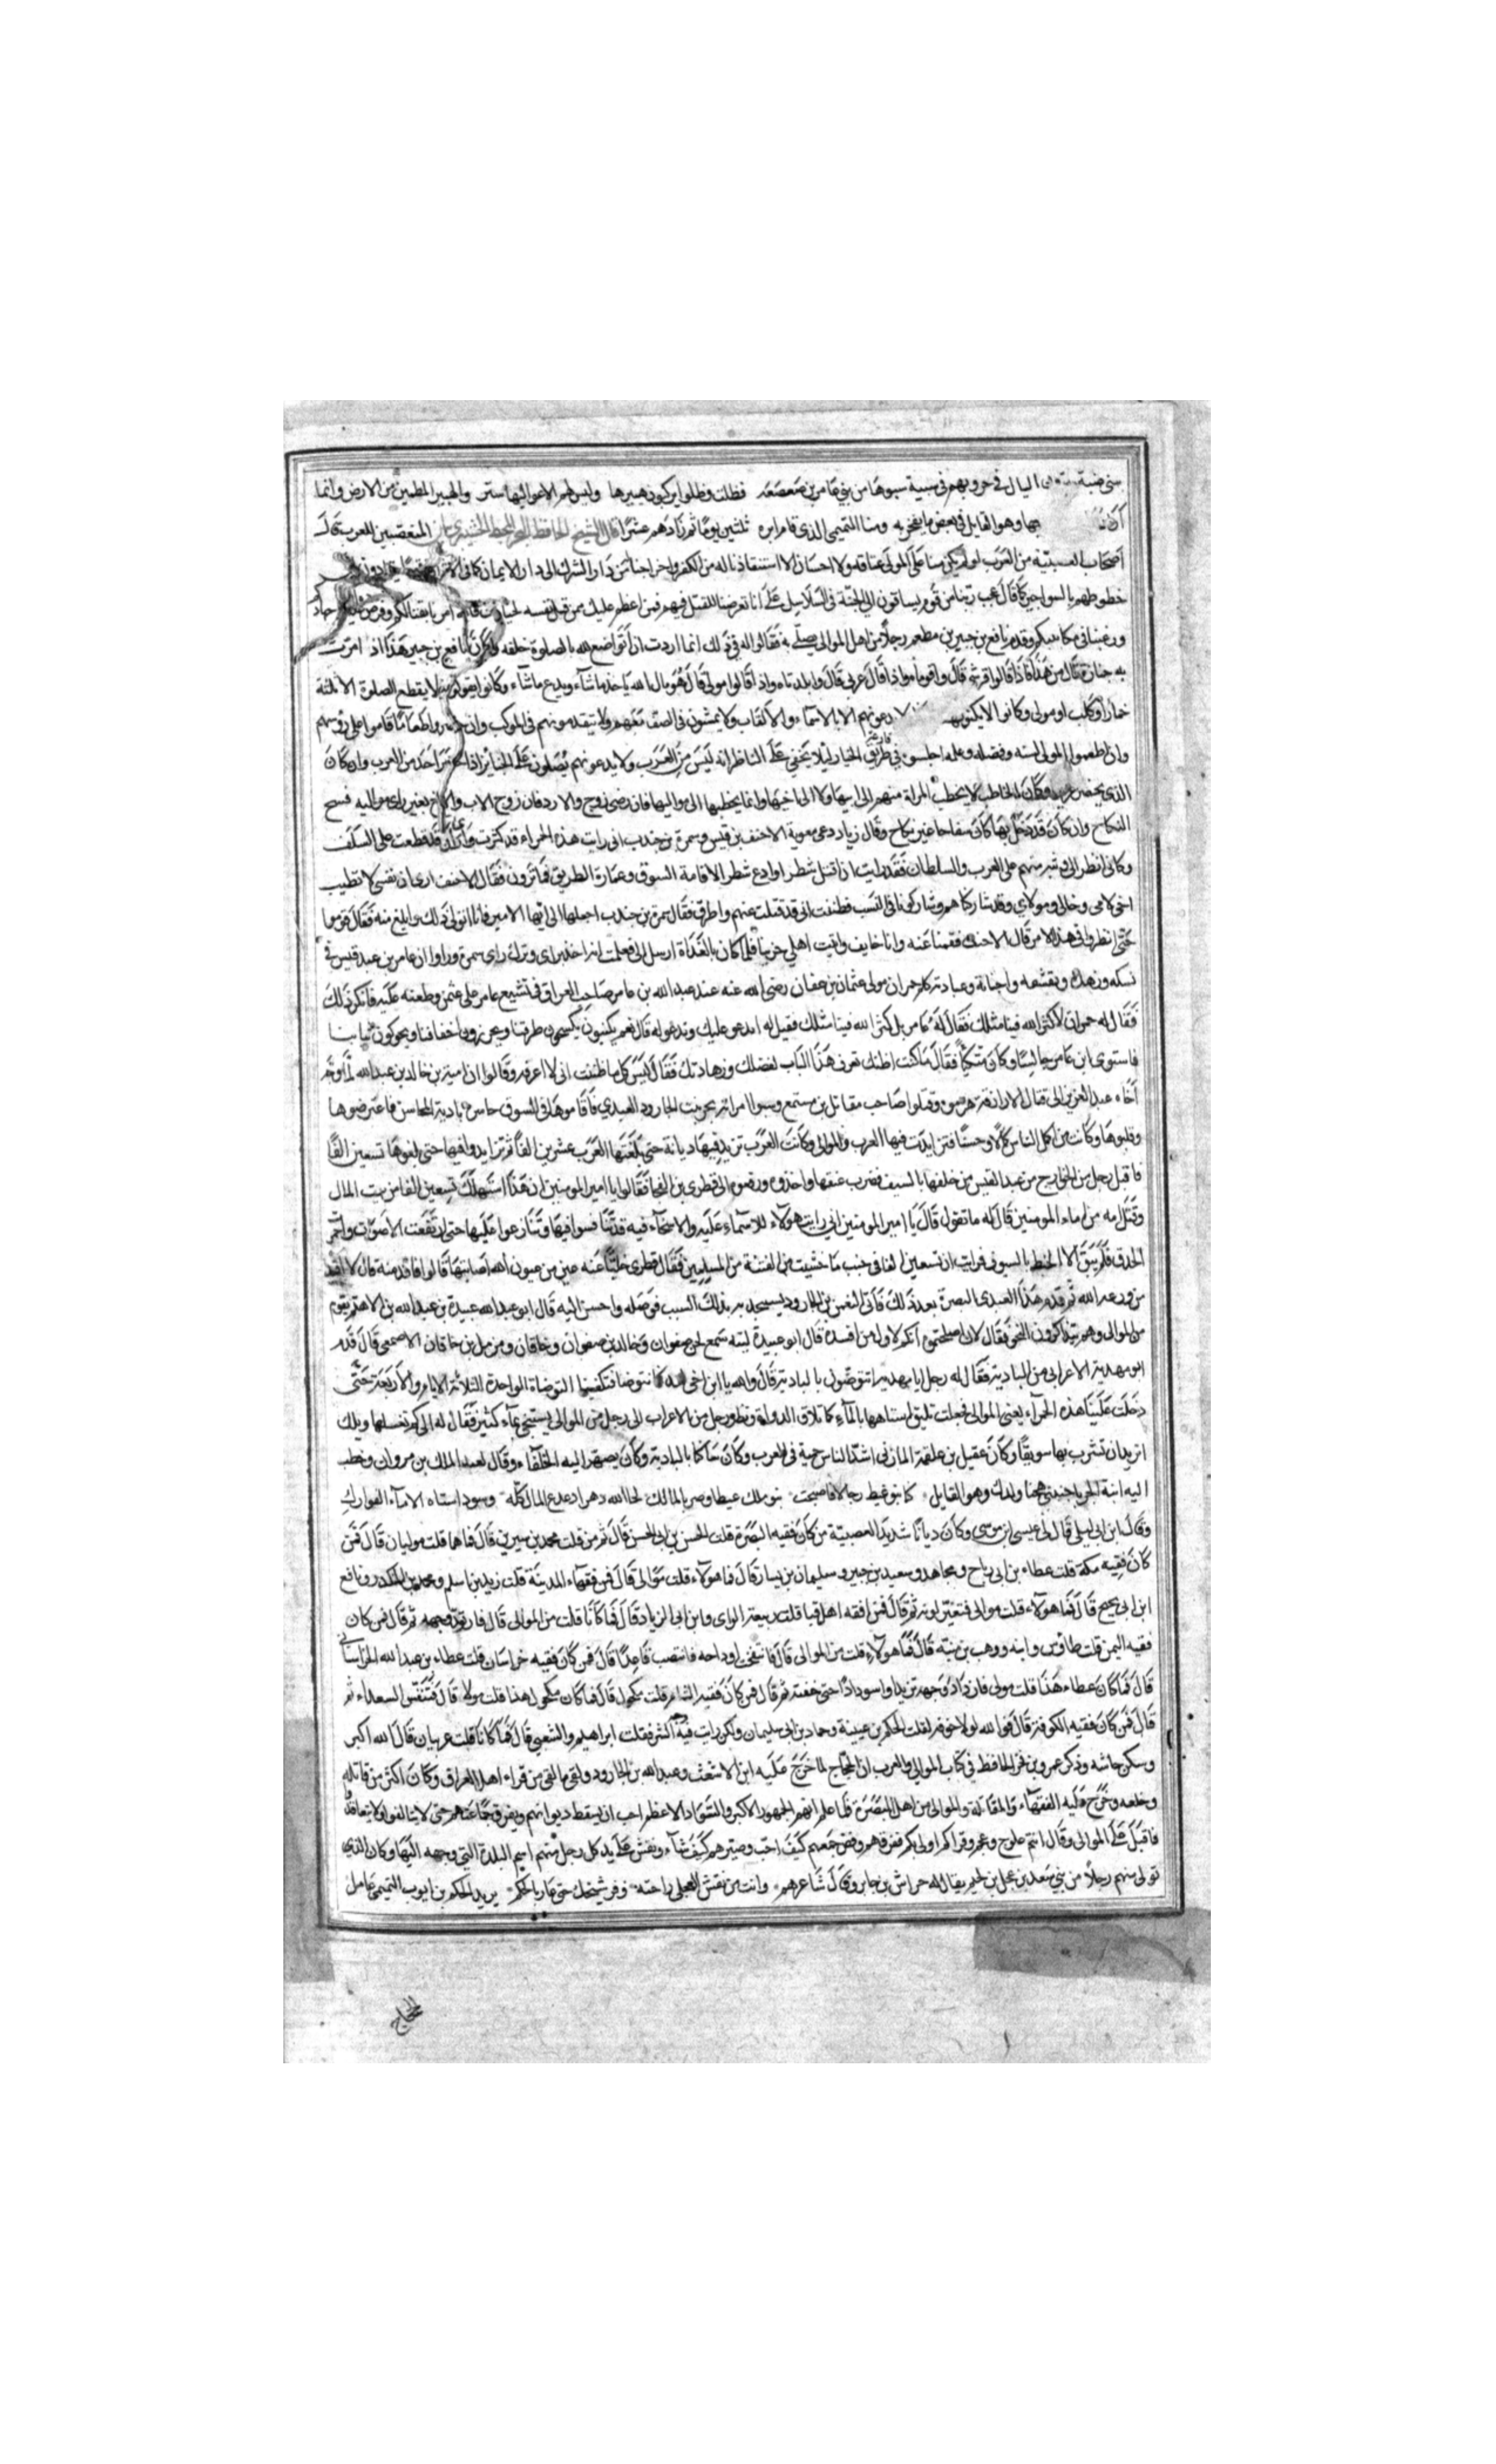 بنى ضبة الليال فى حروبهم فى سبية سبوها من بنى عامر بن صعصعه فظلت وظلوا يركبون هبيرها وليس لهم الا عواليها ستر والهبير المطمين من الارض وانما
بها وهو القايل فى بعض ما يفخر به ومنا التميمى الذى قام ايره ثلثين يوما ثم زادهم عشرا قال الشيخ الحافظ المتعصبين للعرب قال
اصحاب العصبيه من العرب لو لم يكن منا على المولى عتاقه ولا احسان الا استنقاذنا له من الكفر واخراجنا من دار الشرك الى دار الايمان كما فى الاثر ان قوما يقادون الى
حظوظهم بالسواجير كما قال عجب ربنا من قوم يساقون الى الجنة فى السلاسيل على انا تعرضنا للقتل فيهم فمن اعظم عليك ممن قتل نفسه لحياتك فالله امرنا بقتالكم وفرض علينا جهادكم
ورغبنا فى مكاتبتكم وقدم نافع بن جبير بن مطعم رجلا من اهل الموالى يصلى به فقالوا له فى ذلك انما اردت ان اتواضع لله بالصلوة خلفه وكان نافع بن جبير هذا اذا مرت
به جنازة قال من هذا فاذا قالوا قرشى قال واقوماه واذا قال عربى قال وابلدتاه واذا قالوا مولى قال هو مال الله ياخذ ما شاء ويدع ما شاء وكانوا يقولون لا يقطع الصلوة الا ثلثة
حمار او كلب او مولى وكانوا لا يكنونهم ولا يدعونهم الا بالاسماء والالقاب ولا يمشون فى الصف معهم ولا يتقدمونهم فى الموكب وان حضروا طعاما قاموا على روسهم
وان اطعموا المولى لسنه وفضله وعلمه اجلسوه فى طريق الخباز ليلا يخفى على الناظر انه ليس من العرب ولا يدعونهم يصلون على الجنايز اذا حضر احد من العرب وان كان
الذى يحضر غريرا وكان الخاطب لا يخطب المراة منهم الى ابيها ولا الى اخيها وانما يخطبها الى مواليها فان رضى زوج والا رد فان زوج الاب والاخ بغير راى مواليه فسخ
النكاح وان كان قد دخل بها كان سفاحا غير نكاح وقال زياد دعى معوية الاحنف بن قيس وسمرة بن جندب انى رايت هذه الحمراء قد كثرت واراها قد قطعت على السلف
وكانى انظر الى وثبة منهم على العرب والسلطان فقد رايت ان اقتل شطرا وادع شطرا لاقامة السوق وعمارة الطريق فما ترون فقال الاحنف ارى ان نفسى لا تطيب
اخى لامى وخالى ومولاى وقد شاركناهم وشاركونا فى النسب فظننت انى قد قتلت عنهم واطرق فقال سمرة بن جندب اجعلها الى ايها الامير فانا اتولى ذلك وابلغ منه فقال قوموا
حتى انظر فى هذا الامر قال الاحنف فقمنا عنه وانا خايف واتيت اهلى حزينا فلما كان بالغداة ارسل الى فعلمت انه اخذ براى وترك راى سمرة ورووا ان عامر بن عبد قيس فى
نسكه وزهده وتقشفه واخباته وعبادته كلم حمران مولى عثمان بن عفان رضى الله عنه عند عبد الله بن عامر صاحب العراق فى تشيع عامر على عثمن وطعنه عليه فانكر ذلك
فقال له حمران لا كثر الله فينا مثلك فقال له عامر بل كثر الله فينا مثلك فقيل له ايدعو عليك وتدعو له قال نعم يكنسون يكسحون طرقنا ويخرزون اخفافنا ويحوكون ثيابنا
فاستوى ابن عامر جالسا وكان متكئا فقال ما كنت اظنك تعرف هذا الباب لفضلك وزهادتك فقال ليس كل ما ظننت انى لا اعرفه وقالوا ان امية بن خالد بن عبد الله لما وجه
اخاه عبد العزيز الى قتال الازارقة هزموه وقتلوا صاحب مقاتل بن مستمع وسبوا امراته بنت الجارود العبدى فاقاموها فى السوق حاسرة بادية المحاسن فاعترضوها
وقلبوها وكانت من اكمل الناس كمالا وحسنا فتزايدت فيها العرب والموالى وكانت العرب تزيد فيها ديانة حتى بلغتها العرب عشرين الفا ثم تزايدوا فيها حتى بلغوها تسعين الفا
فاقبل رجل من الخوارج من عبد القيس من خلفها بالسيف فضرب عنقها واخذوه ورفعوه الى قطرى بن الفجاة فقالوا يا امير المومنين ان هذا استهلك تسعين الفا من بيت المال
وقتل امه من اماء المومنين قال له ما تقول قال يا امير المومنين انى رايت هولاء قد تنافسوا فيها وتنازعوا عليها حتى ارتفعت الاصوات واحمر
الحدق فلم يبق الا الخبط بالسيوف فرايت ان تسعين الفا فى جنب ما خشيت من الفتنة من المسلمين فقال قطرى خلوا عنه عين من عيون الله اصابتها قالوا فاقد منه قال لا اقيد
من وزعة الله ثم قدم هذا العبدى البصرة بعد ذلك فاتى المنذر بن الجارود يستجديه بذلك السبب فوصله واحسن اليه قال ابو عبد الله عبيدة بن عبد الله بن الاهتم بقوم
من الموالى وهم يتذاكرون النحو فقال لان اصلحتموه انكم لاول من افسده قال ابو عبيدة ليته سمع لحن صفوان وخالد بن صفوان وخاقان ومومل بن خاقان الاصمعى قال قدم
ابو مهدية الاعرابى من البادية فقال له رجل ابا مهدية اتتوضون بالبادية قال والله يا ابن اخى لقد كنا نتوضا فتكفينا التوضاة الواحدة الثلاثة الايام والاربعة حتى
دخلت علينا هذه الحمراء يعنى الموالى فجعلت تليق استاهها بالماء كما تلاق الدواة ونظر رجل من الاعراب الى رجل من الموالى يستنجى بماء كثير فقال له الى كم تغسلها ويلك
اتريد ان تشرب بها سويقا وكان عقيل بن علقمة المازنى اشد الناس حمية فى العرب وكان ساكنا بالبادية وكان يصهر اليه الخلفاء وقال لعبد الملك بن مروان وخطب
اليه ابنة الجربا جنبنى هجنا ولدك وهو القايل كنا بنو غيظ رجالا فاصبحت بنو ملك غيظا وصرنا لمالك لحا الله دهرا ذعذع المال كله وسود استاه الاماء العوارك
وقال ابن ابى ليلى قال لى عيسى بن موسى وكان ديانا شديد العصبية من كان فقيه البصرة قلت الحسن بن ابى الحسن قال ثم من قلت محمد بن سيرين قال فما هما قلت موليان قال فمن
كان فقيه مكة قلت عطاء بن ابى رباح ومجاهد وسعيد بن جبير وسليمان بن يسار قال فما هولاء قلت موالى قال فمن فقهاء المدينة قلت زيد بن اسلم ومحمد بن المنكدر ونافع
ابن ابى نجيح قال فما هولاء قلت موالى فتغير لونه ثم قال فمن افقه اهل قبا قلت ربيعة الراى وابن ابى الزياد قال فما كانا قلت من الموالى قال فاربد وجهه ثم قال فمن كان
فقيه اليمن قلت طاوس وابنه ووهب بن منبه قال فما هولاء قلت من الموالى قال فانتفخت اوداجه فانتصب قاعدا قال فمن كان فقيه خراسان قلت عطاء بن عبد الله الخراسانى
قال فما كان عطاء هذا قلت مولى فازداد وجهه تربدا واسود اسودادا حتى خفته ثم قال فمن كان فقيه الشام قلت مكحول قال فما كان مكحول هذا قلت مولا قال فتنفس الصعداء ثم
قال فمن كان فقيه الكوفة قال فوالله لولا خوفه لقلت الحكم بن عيينة وحماد بن ابى سليمان ولكن رايت فيه الشر فقلت ابراهيم والشعبى قال فما كانا قلت عربيان قال الله اكبر
وسكن جاشه وذكر عمرو بن بحر الحافظ فى كتاب الموالى والعرب ان الحجاج لما خرج عليه ابن الاشعث وعبد الله بن الجارود ولقى ما لقى من قراء اهل العراق وكان اكثر من قاتله
وخلعه وخرج عليه الفقهاء والمقاتلة والموالى من اهل البصرة فلما علم انهم الجمهور الاكبر والسواد الاعظم احب ان يسقط ديوانهم ويفرق جماعتهم حتى لا يتالفوا ولا يتعاقدوا
فاقبل على الموالى وقال انتم علوج وعجم وقراكم اولى بكم ففرقهم وفض جمعهم كيف احب وصيرهم كيف شاء ونقش على يد كل رجل منهم اسم البلدة التى وجهه اليها وكان الذى
تولى منهم رجلا من بنى سعد بن عجل بن لجيم يقال له حراش بن جابر وقال شاعرهم وانت من نقش العجلى راحته وفر شيخك حتى عاذ بالحكم يريد الحكم بن ايوب التميمى عامل
الحجاج